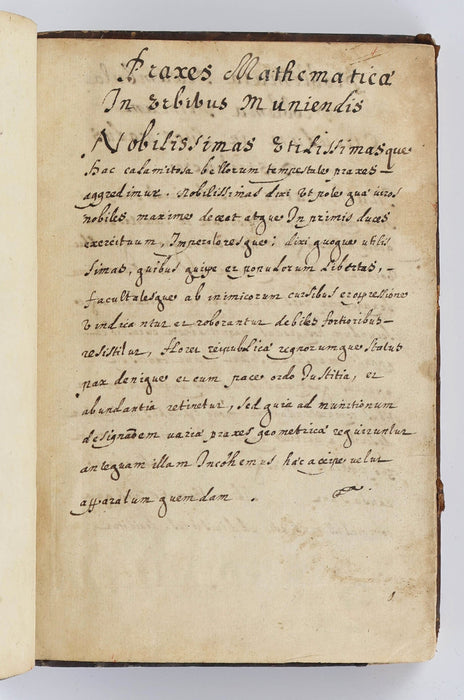 Praxes Mathematicæ
In vrbibus Muniendis
Nobilissimas vtilissimasque
hac calamitosa bellorum tempestate praxes
aggredimur. Nobilissimas dixi vt pote quæ viros
nobiles maxime deceat atque In primis duces
exercituum, Imperatoresque; dixi quoque utilis
simas, quibus quipe et populorum libertas,
facultatesque ab inimicorum cursibus et opressione
vindicantur et roborantur debiles fortioribus
resistitur, floret reipublicæ regnorumque status
pax denique et cum pace ordo Iustitia, et
abundantia retinetur, sed quia ad munitionum
designãdem variæ praxes geometricæ requiruntur
antequam illam Incohemus hæc accipe velut
apparatum quemdam.
1